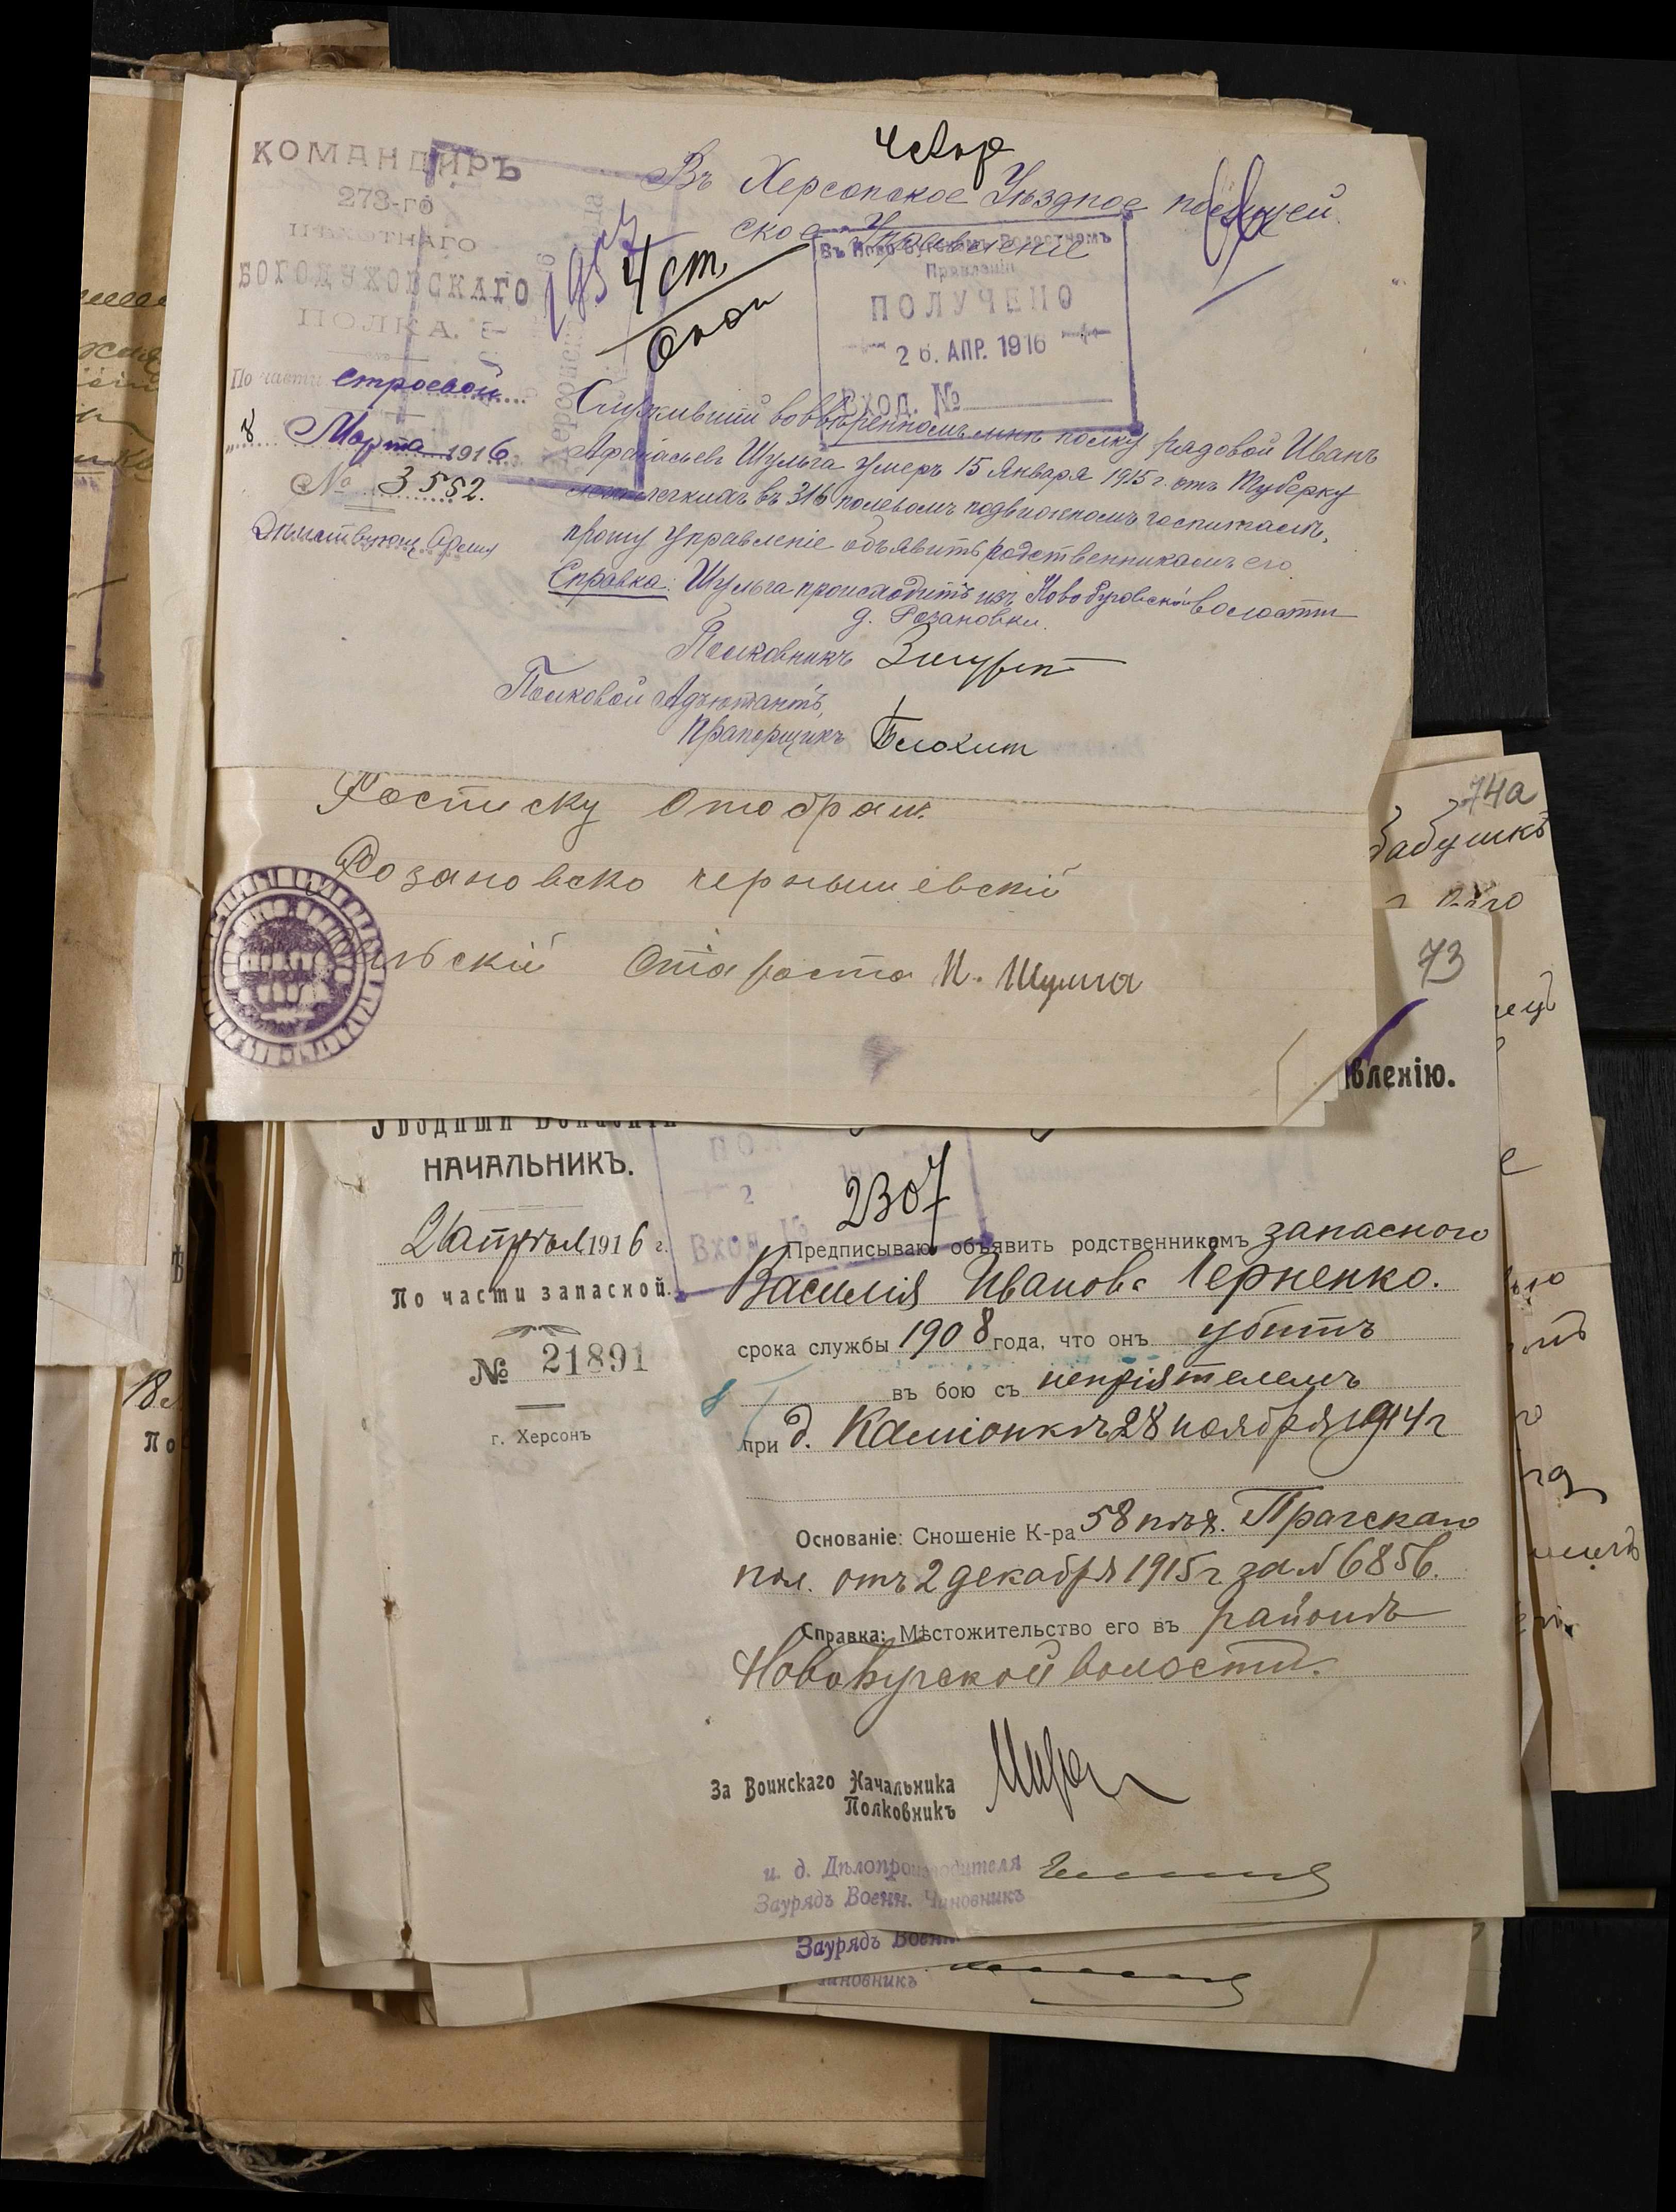 КОМАНДИРЪ
273-го
ПѢХОТНАГО
БОГОДУХОВСКАГО
ПОЛКА.
По части строевой
8 Марта 1916
№ 3552.
Въ Херсонское Уѣздное полицей
ское Управленіе
4 ст.
Въ Ново-Бугскомъ Волостномъ
Правленіи
ПОЛУЧЕНО
26. АПР. 1916
Вход. №
Служившій во ввѣренномъ мнѣ полку рядовой Иванъ
Афанасьевъ Шульга умеръ 15 Января 1915 г. отъ туберку
легкихъ въ 316 полевомъ подвижномъ госпиталѣ,
прошу управленіе объявить родственникамъ его
Справка: Шульга происходитъ изъ Новобуговской волости
д. Розановки.
Полковникъ
Полковой Адъютантъ,
Прапорщикъ
Росписку отобралъ
Розановско чернышевскій
льскій Староста И. Шульга
74а
бабушкѣ
73
вленію.
НАЧАЛЬНИКЪ.
апрѣля 1916 г.
По части запасной.
№ 21891
г. Херсонъ
Вход. №
2307
Предписываю объявить родственникомъ запасного
Василія Иванова Черненко.
срока службы 1908 года, что онъ убитъ
въ бою съ непріятелемъ
при д. Каміонкѣ 28 ноября 1914 г
Основаніе: Сношеніе К-ра 58 пѣх. Прагскаго
пол. отъ 2 декабря 1915 г. за № 6856.
Справка: Мѣстожительство его въ районѣ
Новобугской волости.
За Воинскаго Начальника
Полковникъ
и. д. Дѣлопроизводителя
Зaурядъ Военн. Чиновникъ
Заурядъ Военн.
чиновникъ